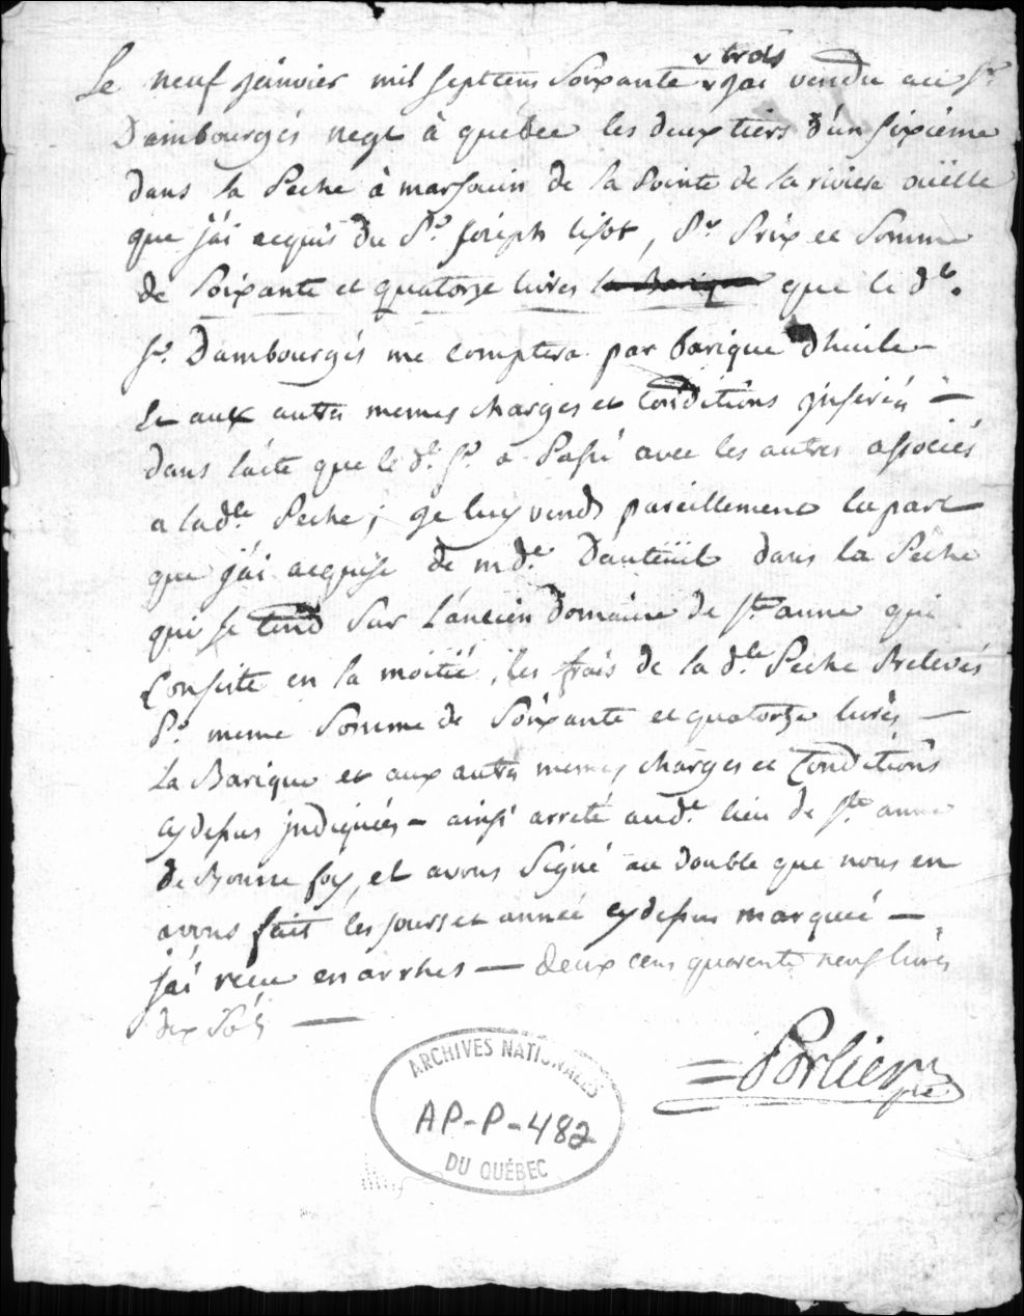 trois
Le neuf janvier mil sept cens Soixante v jai vendu au Sr
Dambourgés negt à quebec les deux tiers d'un sixiéme
dans la Peche à marsouin de la Pointe de la riviere ouëlle
que j'ai acquis du Sr. joseph lisot, Pr Prix et Somme
de Soixante et quatorze livres la Barique que le dt.
Sr. Dambourgés me comptera par barique d'huile
Et aux autres memes charges et Conditions jnserées –
dans l'acte que le dt. Sr. a Passé avec les autres associés
a lade. Peche; je luy vends pareillement la part
que j'ai acquise de mde. Dauteüil dans la Pêche
qui se tend Sur l'ancien domaine de Ste anne qui
Consiste en la moitié, les frais de la dte. Peche Prelevés
Pr. meme Somme de Soixante et quatorze livres –
La Barique et aux autres memes charges et Conditions
cy dessus jndiquées – ainsi arreté audt. lieu de Ste anne
de Bonne foy, et avons Signé au double que nous en
avons fait les jours et année cy dessus marqueé –
j'ai reçu en arrhes — deux cens quarente neuf livres
dix Sols —
Porlier
ARCHIVES NATIONALES
AP-P-482
DU QUÉBEC